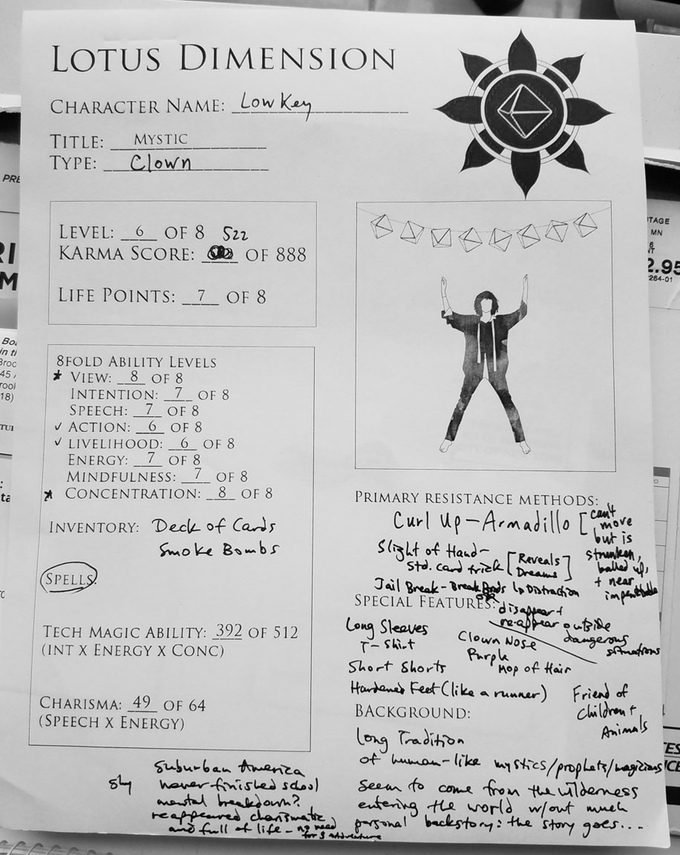 LOTUS DIMENSION
CHARACTER NAME: Low Key
TITLE: MYSTIC
TYPE: Clown
LEVEL: 6 OF 8 522
KARMA SCORE: OF 888
LIFE POINTS: 7 OF 8
8FOLD ABILITY LEVELS
* VIEW: 8 OF 8
INTENTION: 7 OF 8
SPEECH: 7 OF 8
✓ ACTION: 6 OF 8
✓ LIVELIHOOD: 6 OF 8
ENERGY: 7 OF 8
MINDFULNESS: 7 OF 8
* CONCENTRATION: 8 OF 8
INVENTORY: Deck of Cards
Smoke Bombs
SPELLS:
TECH MAGIC ABILITY: 392 OF 512
(INT X ENERGY X CONC)
CHARISMA: 49 OF 64
(SPEECH X ENERGY)
Suburban America
shy never finished school
mental breakdown?
reappeared charismatic
and full of life - no need
for
PRIMARY RESISTANCE METHODS:
Curl Up - Armadillo [can't
move
but is
shrunken,
balled up,
+ near
impenetrable
Slight of Hand -
Std. card trick [Reveals
Dreams]
Jail Break - Break Bonds
↳ Distraction
OR
SPECIAL FEATURES:
disappear +
reappear outside
dangerous
situations
Long Sleeves
T-Shirt
Clown Nose
Purple
Mop of Hair
Short Shorts
Hardened Feet (like a runner)
Friend of
Children +
Animals
BACKGROUND:
Long Tradition
of human-like mystics/prophets/magicians
Seem to come from the wilderness
entering the world w/out much
personal backstory: the story goes...
PRE
RI
M
TAGE
MN
2.95
264-01